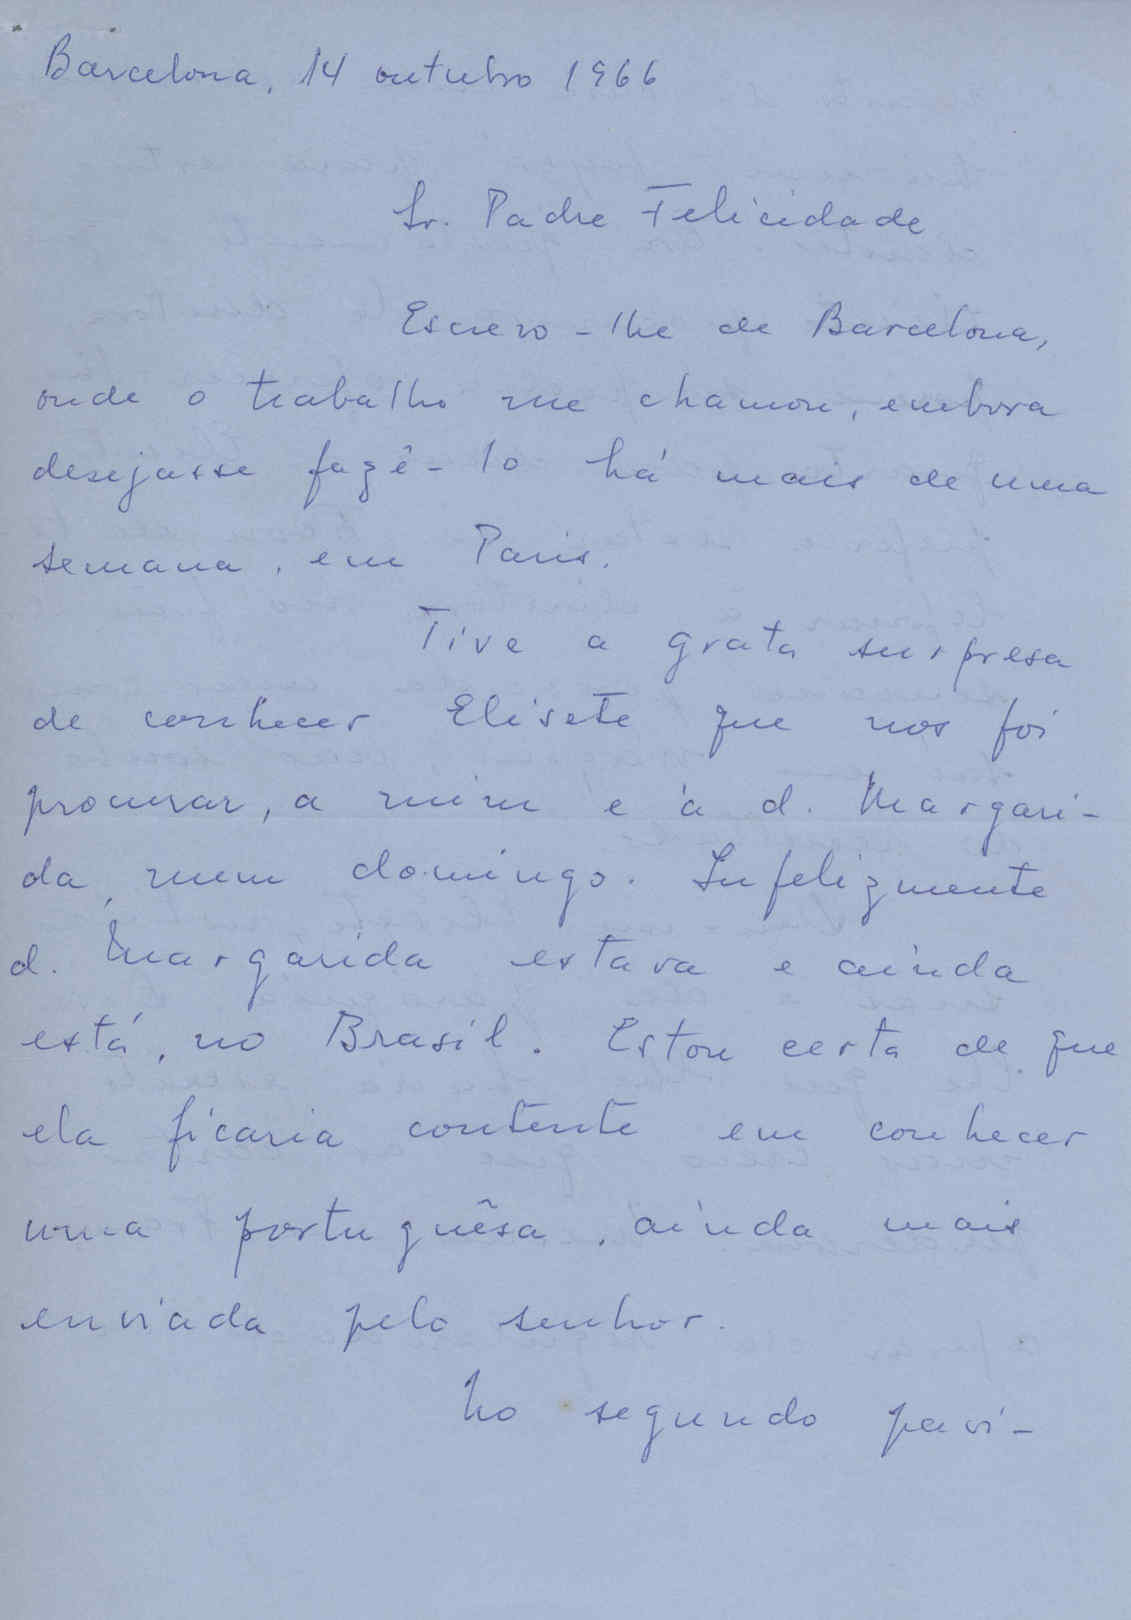 Barcelona, 14 outubro 1966
Sr. Padre Felicidade
Escrevo-lhe de Barcelona,
onde o trabalho me chamou, embora
desejasse fazê-lo há mais de uma
semana, em Paris.
Tive a grata surpresa
de conhecer Elisete que nos foi
procurar, a mim e à d. Margari-
da, num domingo. Infelizmente
d. Margarida estava e ainda
está, no Brasil. Estou certa de que
ela ficaria contente em conhecer
uma portuguêsa, ainda mais
enviada pelo senhor.
No segundo pavi-